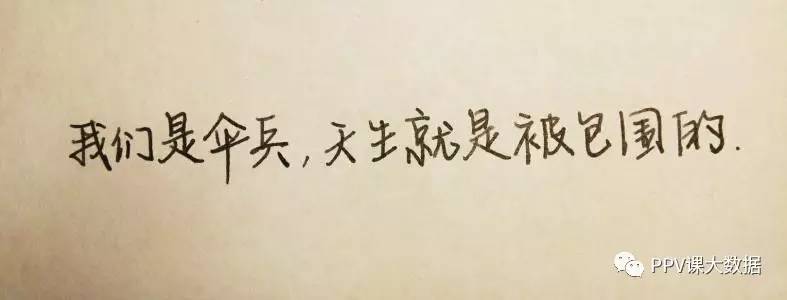 我们是伞兵,天生就是被包围的.
PPV课大数据